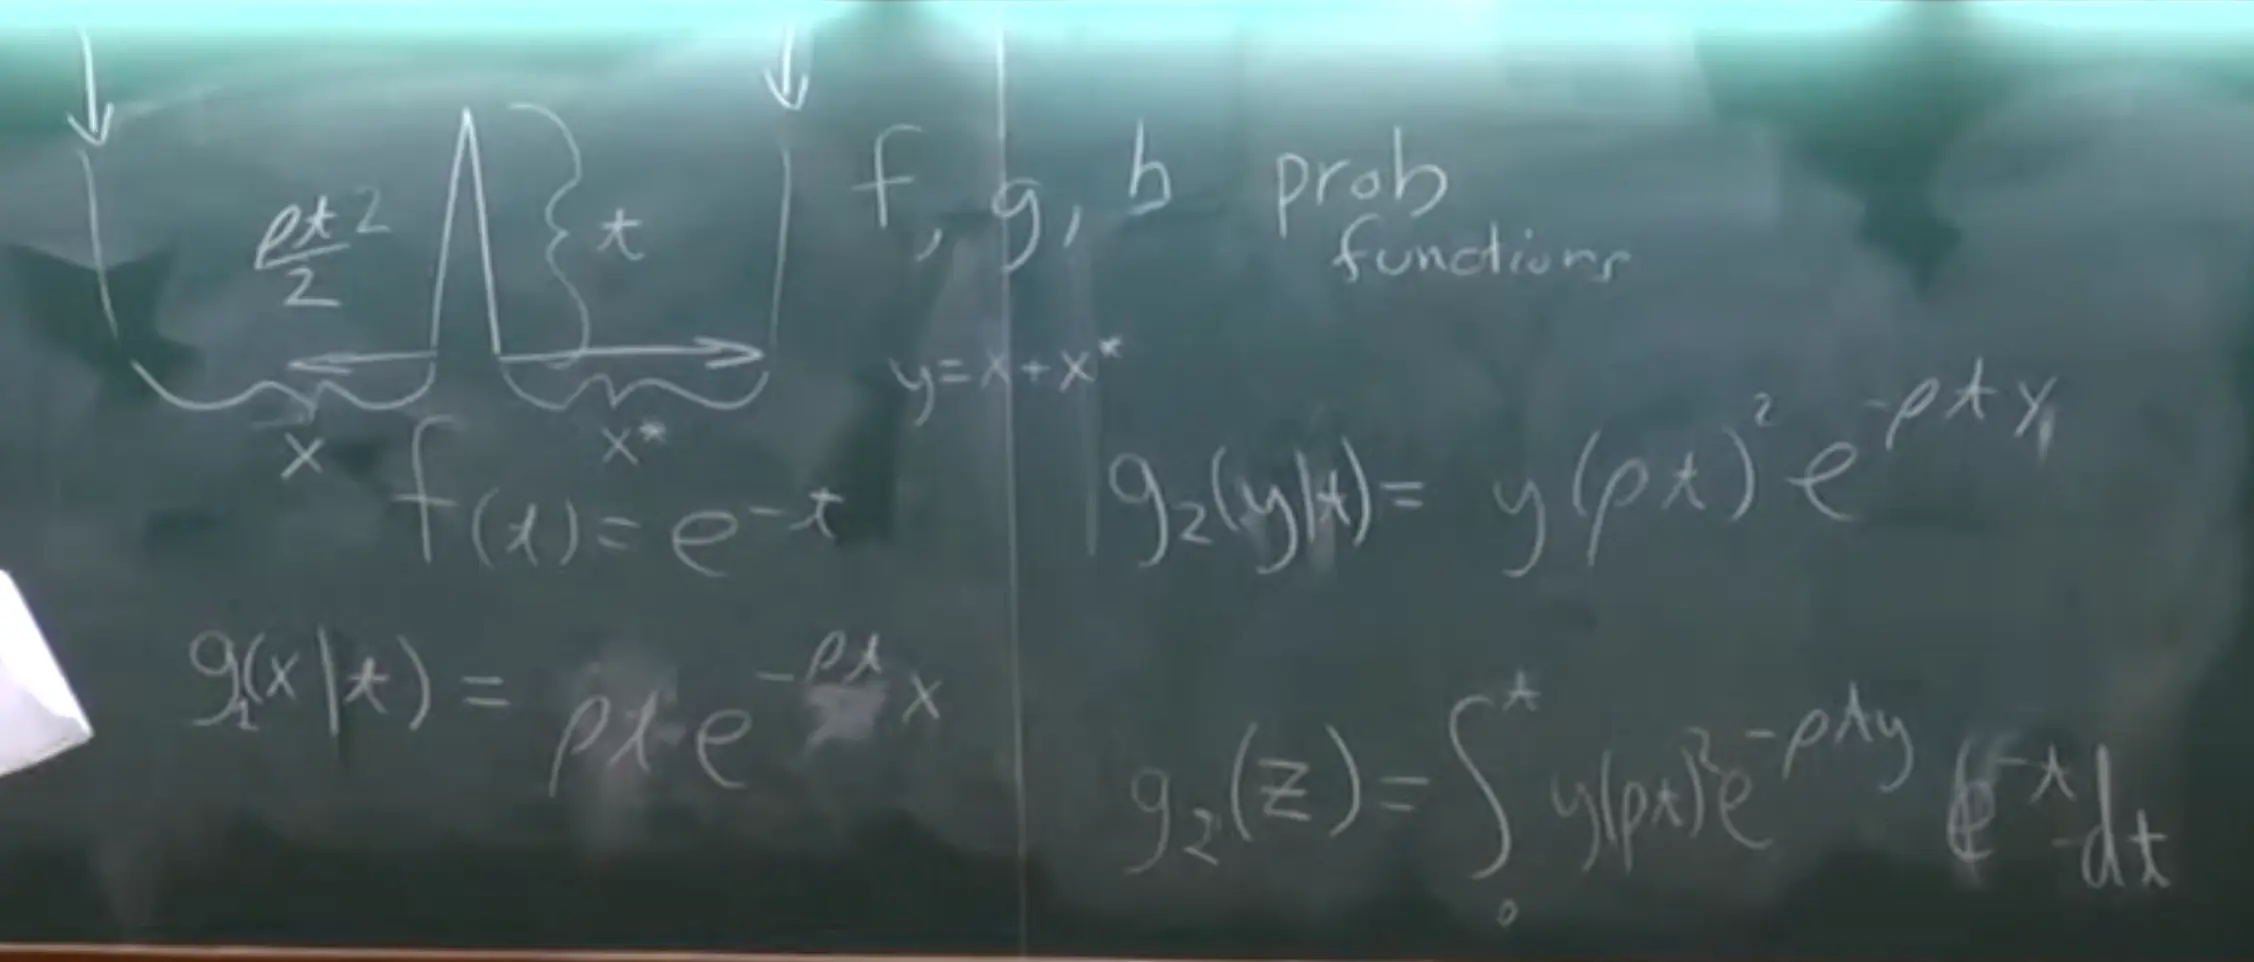 ρt²/2
t
x
x*
f(t) = e^{-t}
g₁(x|t) = ρt e^{-ρt x}
f, g, h prob
functions
y = x + x*
g₂(y|t) = y(ρt)² e^{-ρty}
g₂(z) = ∫₀^t y(ρt)² e^{-ρty} e^{-t} dt